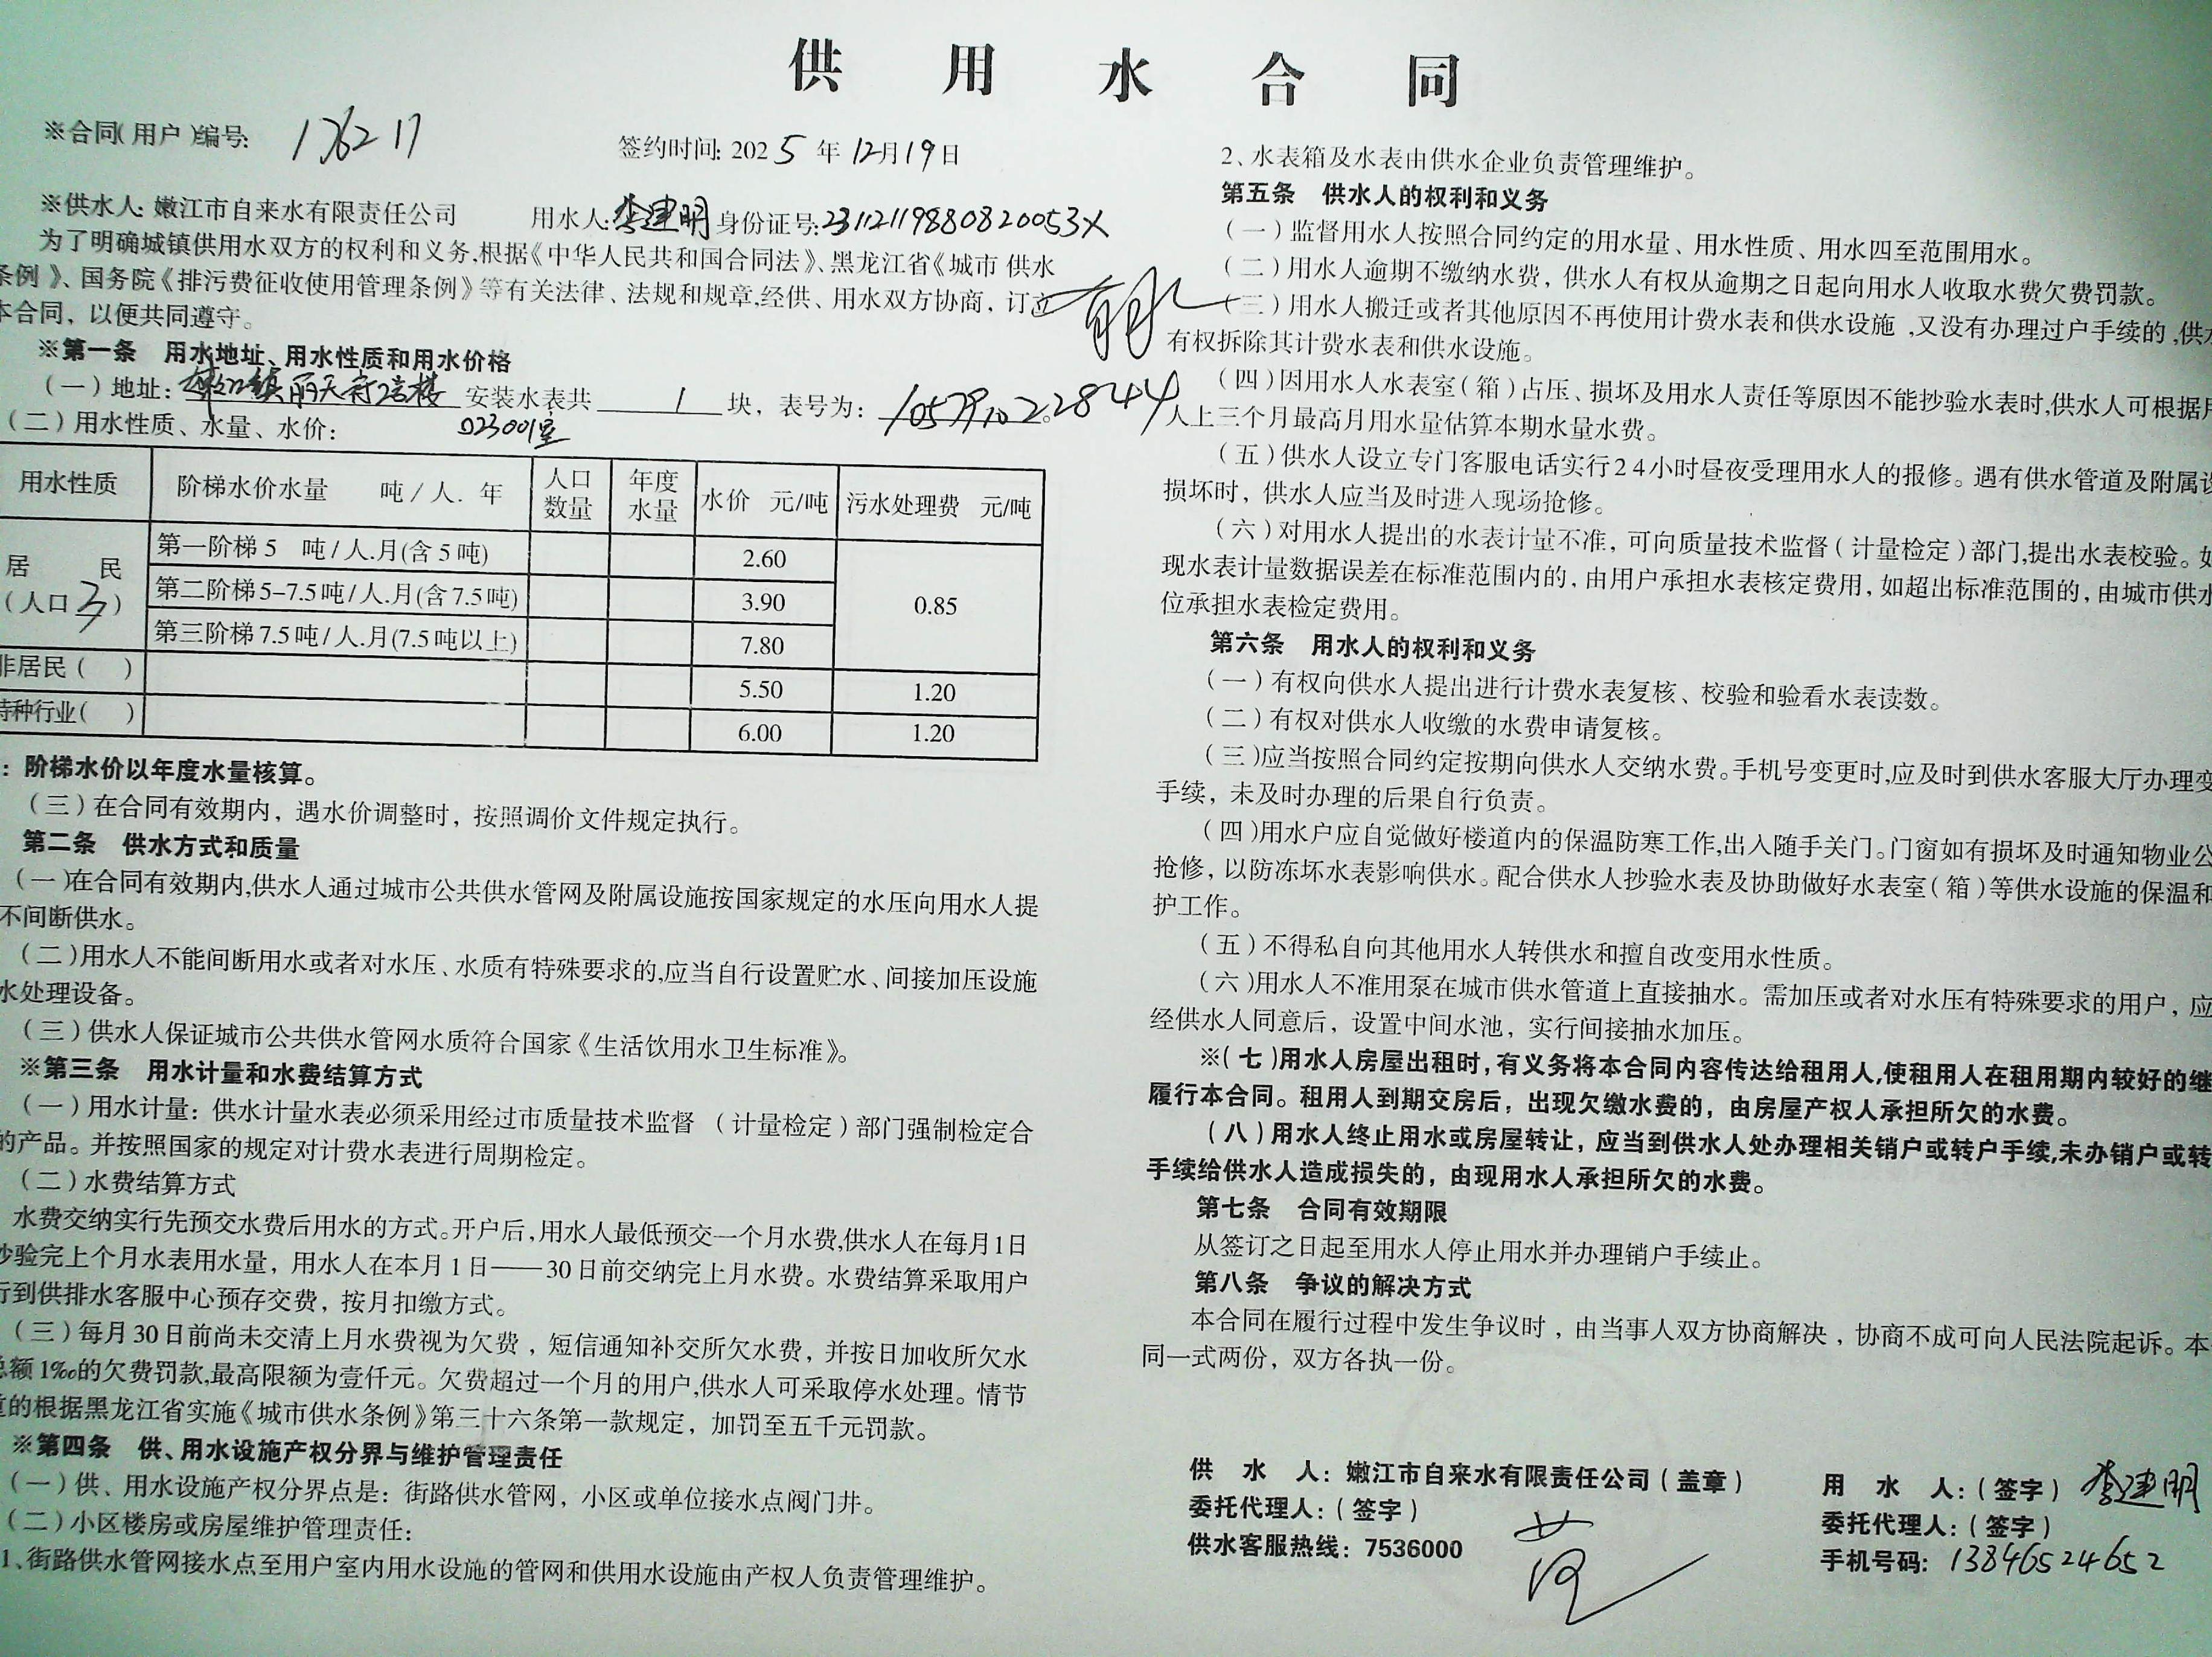 供用水合同
※合同(用户)编号: 176217
签约时间: 2025年12月19日
※供水人: 嫩江市自来水有限责任公司 用水人: 李建明 身份证号: 23112119880820053X
为了明确城镇供用水双方的权利和义务,根据《中华人民共和国合同法》、黑龙江省《城市 供水
条例》、国务院《排污费征收使用管理条例》等有关法律、法规和规章,经供、用水双方协商，订立
本合同，以便共同遵守。
※第一条 用水地址、用水性质和用水价格
(一)地址: 安装水表共 1 块，表号为: 105791022844
(二)用水性质、水量、水价:
用水性质 阶梯水价水量 吨/人.年 人口数量 年度水量 水价 元/吨 污水处理费 元/吨
居民(人口3) 第一阶梯5 吨/人.月(含5吨) 2.60 0.85
第二阶梯5-7.5吨/人.月(含7.5吨) 3.90
第三阶梯7.5吨/人.月(7.5吨以上) 7.80
非居民( ) 5.50 1.20
特种行业( ) 6.00 1.20
: 阶梯水价以年度水量核算。
(三)在合同有效期内，遇水价调整时，按照调价文件规定执行。
第二条 供水方式和质量
(一)在合同有效期内,供水人通过城市公共供水管网及附属设施按国家规定的水压向用水人提
不间断供水。
(二)用水人不能间断用水或者对水压、水质有特殊要求的,应当自行设置贮水、间接加压设施
水处理设备。
(三)供水人保证城市公共供水管网水质符合国家《生活饮用水卫生标准》。
※第三条 用水计量和水费结算方式
(一)用水计量: 供水计量水表必须采用经过市质量技术监督 (计量检定)部门强制检定合
的产品。并按照国家的规定对计费水表进行周期检定。
(二)水费结算方式
水费交纳实行先预交水费后用水的方式。开户后,用水人最低预交一个月水费,供水人在每月1日
抄验完上个月水表用水量，用水人在本月1日——30日前交纳完上月水费。水费结算采取用户
行到供排水客服中心预存交费，按月扣缴方式。
(三)每月30日前尚未交清上月水费视为欠费，短信通知补交所欠水费，并按日加收所欠水
总额1‰的欠费罚款,最高限额为壹仟元。欠费超过一个月的用户,供水人可采取停水处理。情节
重的根据黑龙江省实施《城市供水条例》第三十六条第一款规定，加罚至五千元罚款。
※第四条 供、用水设施产权分界与维护管理责任
(一)供、用水设施产权分界点是: 街路供水管网，小区或单位接水点阀门井。
(二)小区楼房或房屋维护管理责任:
1、街路供水管网接水点至用户室内用水设施的管网和供用水设施由产权人负责管理维护。
2、水表箱及水表由供水企业负责管理维护。
第五条 供水人的权利和义务
(一)监督用水人按照合同约定的用水量、用水性质、用水四至范围用水。
(二)用水人逾期不缴纳水费，供水人有权从逾期之日起向用水人收取水费欠费罚款。
(三)用水人搬迁或者其他原因不再使用计费水表和供水设施,又没有办理过户手续的,供水
有权拆除其计费水表和供水设施。
(四)因用水人水表室(箱)占压、损坏及用水人责任等原因不能抄验水表时,供水人可根据用
人上三个月最高月用水量估算本期水量水费。
(五)供水人设立专门客服电话实行24小时昼夜受理用水人的报修。遇有供水管道及附属设
损坏时，供水人应当及时进入现场抢修。
(六)对用水人提出的水表计量不准，可向质量技术监督(计量检定)部门,提出水表校验。如
现水表计量数据误差在标准范围内的，由用户承担水表核定费用，如超出标准范围的，由城市供水
位承担水表检定费用。
第六条 用水人的权利和义务
(一)有权向供水人提出进行计费水表复核、校验和验看水表读数。
(二)有权对供水人收缴的水费申请复核。
(三)应当按照合同约定按期向供水人交纳水费。手机号变更时,应及时到供水客服大厅办理变
手续，未及时办理的后果自行负责。
(四)用水户应自觉做好楼道内的保温防寒工作,出入随手关门。门窗如有损坏及时通知物业公
抢修，以防冻坏水表影响供水。配合供水人抄验水表及协助做好水表室(箱)等供水设施的保温和
护工作。
(五)不得私自向其他用水人转供水和擅自改变用水性质。
(六)用水人不准用泵在城市供水管道上直接抽水。需加压或者对水压有特殊要求的用户，应
经供水人同意后，设置中间水池，实行间接抽水加压。
※(七)用水人房屋出租时,有义务将本合同内容传达给租用人,使租用人在租用期内较好的继
履行本合同。租用人到期交房后，出现欠缴水费的，由房屋产权人承担所欠的水费。
(八)用水人终止用水或房屋转让，应当到供水人处办理相关销户或转户手续,未办销户或转
手续给供水人造成损失的，由现用水人承担所欠的水费。
第七条 合同有效期限
从签订之日起至用水人停止用水并办理销户手续止。
第八条 争议的解决方式
本合同在履行过程中发生争议时，由当事人双方协商解决，协商不成可向人民法院起诉。本
同一式两份，双方各执一份。
供水人: 嫩江市自来水有限责任公司(盖章)
委托代理人:(签字)
供水客服热线: 7536000
用水人:(签字) 李建明
委托代理人:(签字)
手机号码: 13846524652